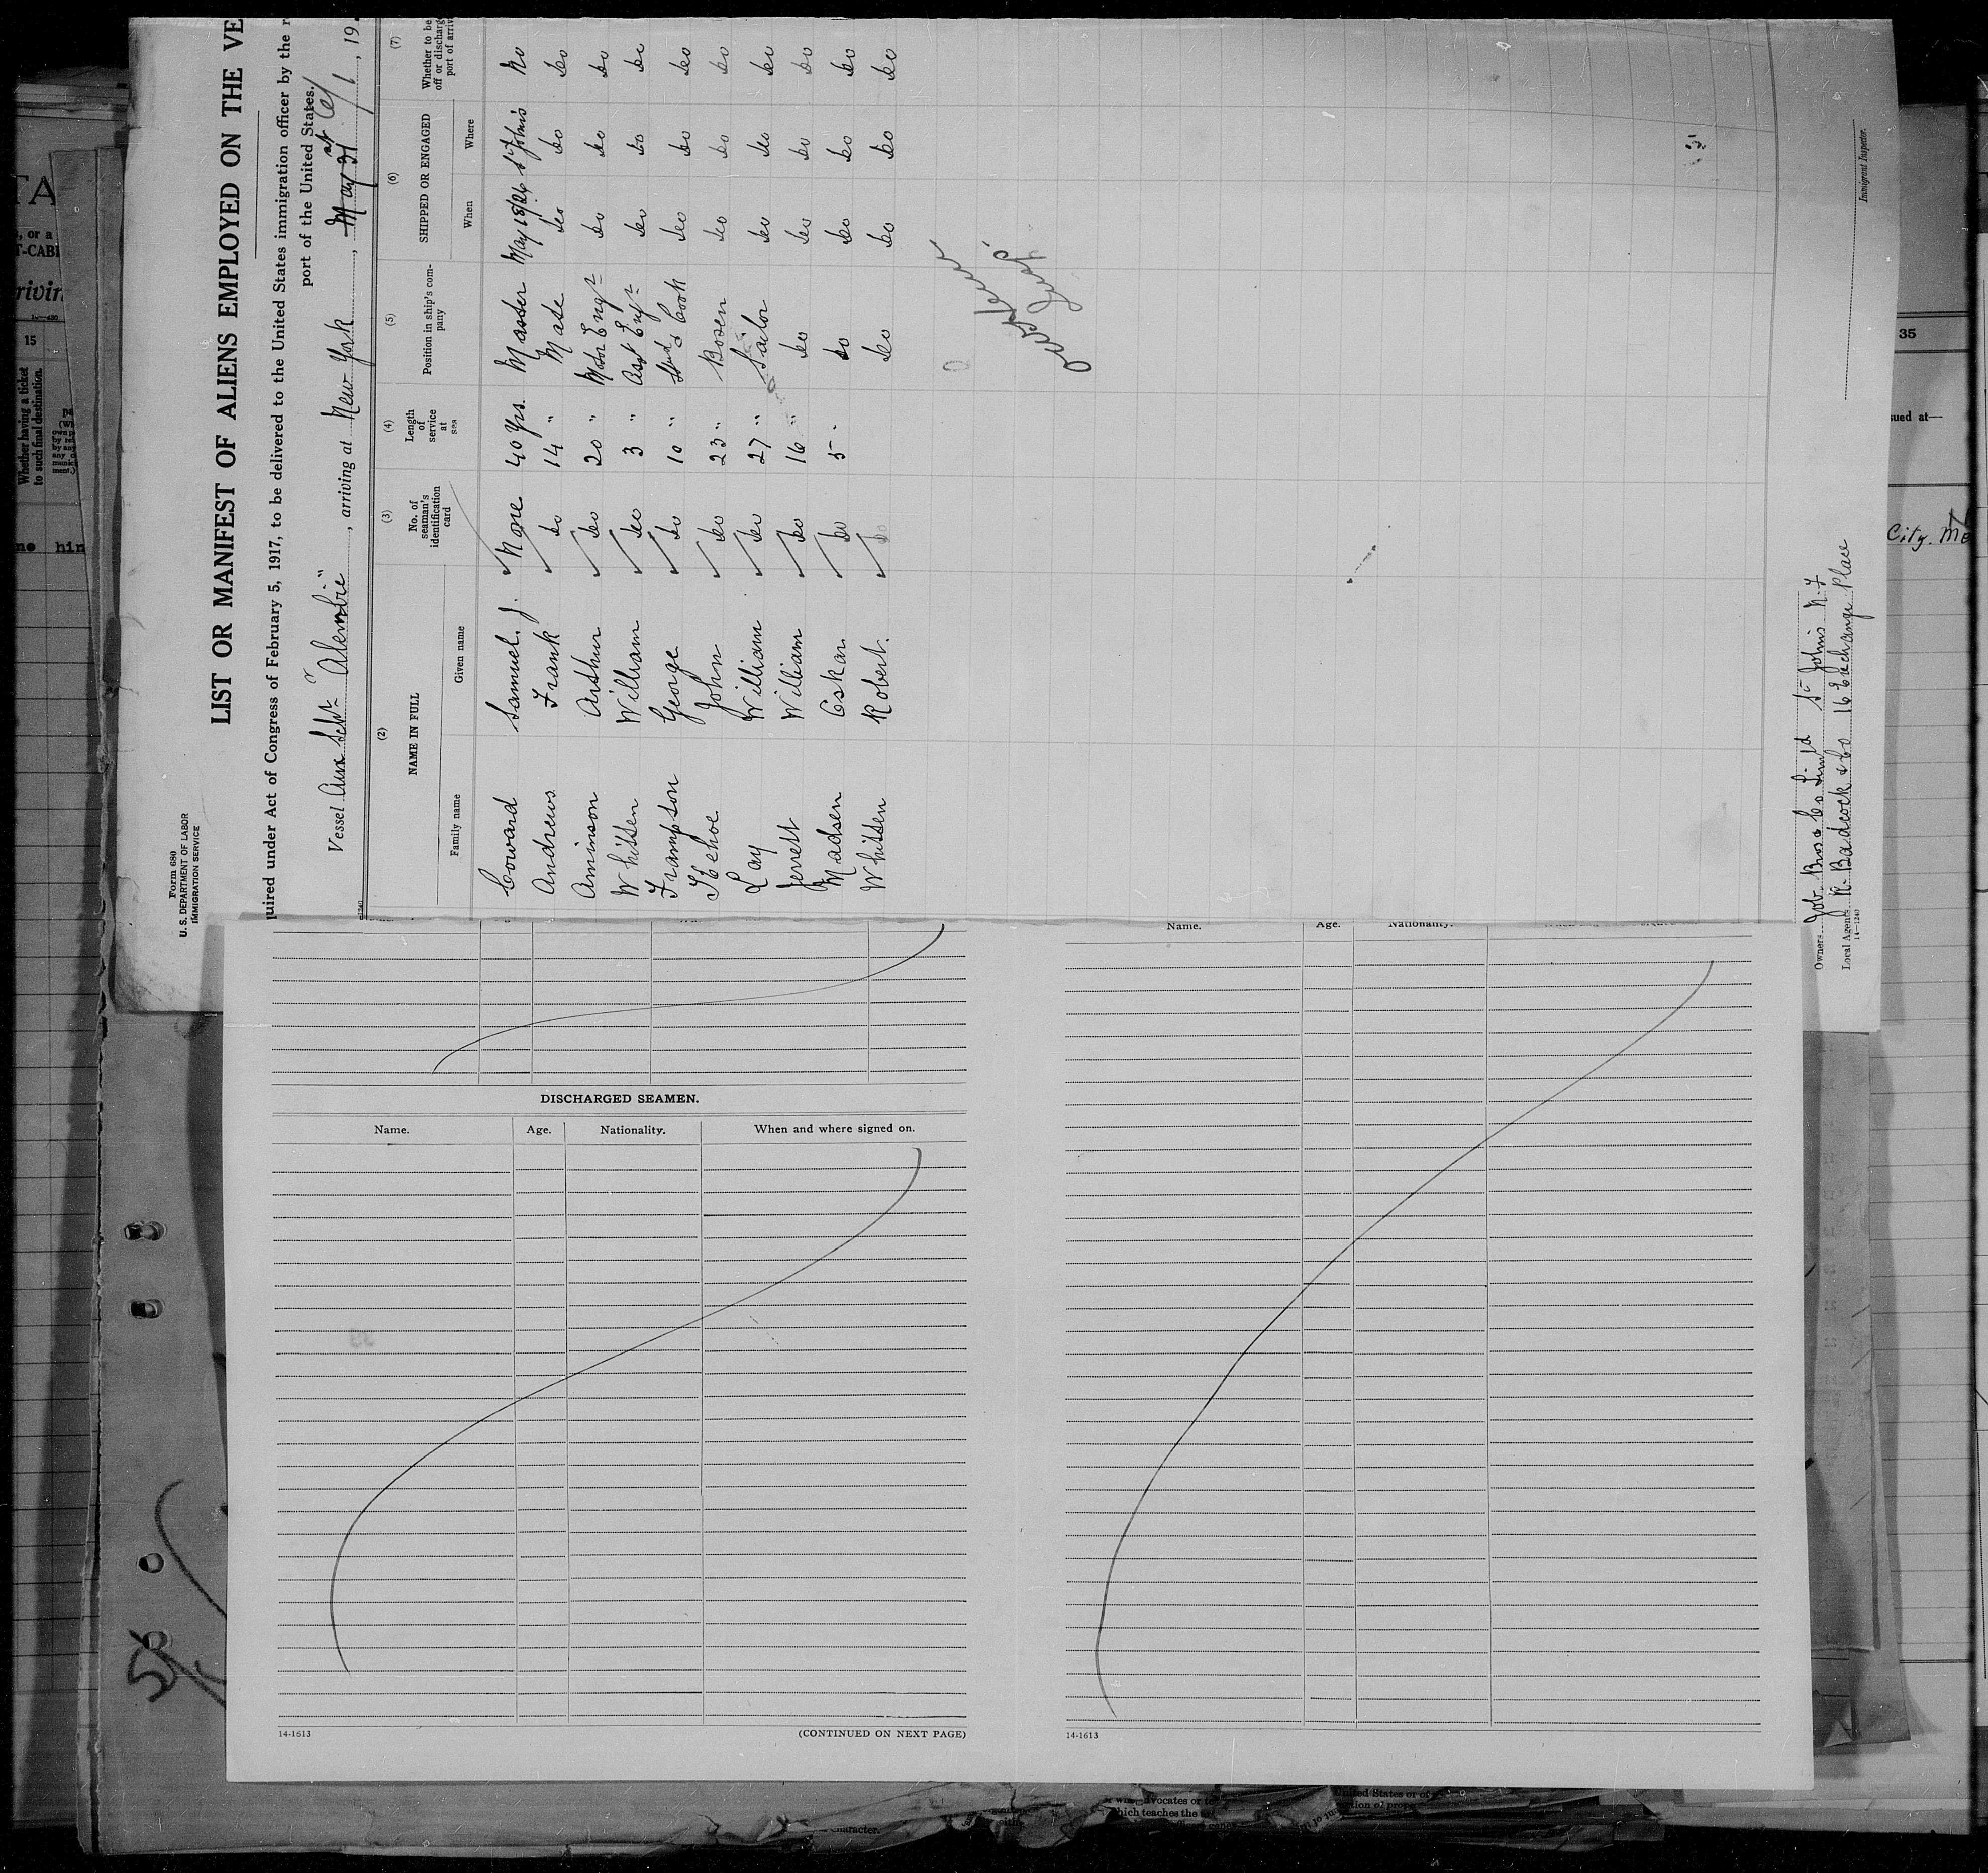 Form 680
U. S. DEPARTMENT OF LABOR
IMMIGRATION SERVICE
LIST OR MANIFEST OF ALIENS EMPLOYED ON THE VE
quired under Act of Congress of February 5, 1917, to be delivered to the United States immigration officer by the r
port of the United States.
Vessel Aux Schr "Alembic", arriving at New York, May 31st, 19.
(2) (3) (4) (5) (6) (7)
NAME IN FULL No. of seaman's identification card Length of service at sea Position in ship's company SHIPPED OR ENGAGED Whether to be off or discharg port of arriv
Family name Given name When Where
Coward Samuel. J. None 40 yrs. Master May 18/24 St John's No
Andrews Frank do 14 " Mate do do do
Aminson Arthur do 20 " Motor Engr do do do
Whitten William do 3 " Asst Engr do do do
Frampson George do 10 " Stwd & Cook do do do
Kehoe John do 23 " Bosen do do do
Lay William do 27 " Sailor do do do
Jerrett William do 16 " do do do do
Madsen Oskar do 5 " do do do do
Whitten Robert. do do do do do
Owners Job Bros & Co Limtd St Johns N.F
Local Agents R. Badcock & Co 16 Exchange Place
14—1240
Immigrant Inspector.
DISCHARGED SEAMEN.
Name. Age. Nationality. When and where signed on.
14-1613
(CONTINUED ON NEXT PAGE)
Name. Age. Nationality.
14-1613
TA
, or a
T-CABI
rivin
15
Whether having a ticket
to such final destination.
hin
35
sued at—
City. Me
58
dvocates or
hich teaches the
nited States or of
tion of prope
character.